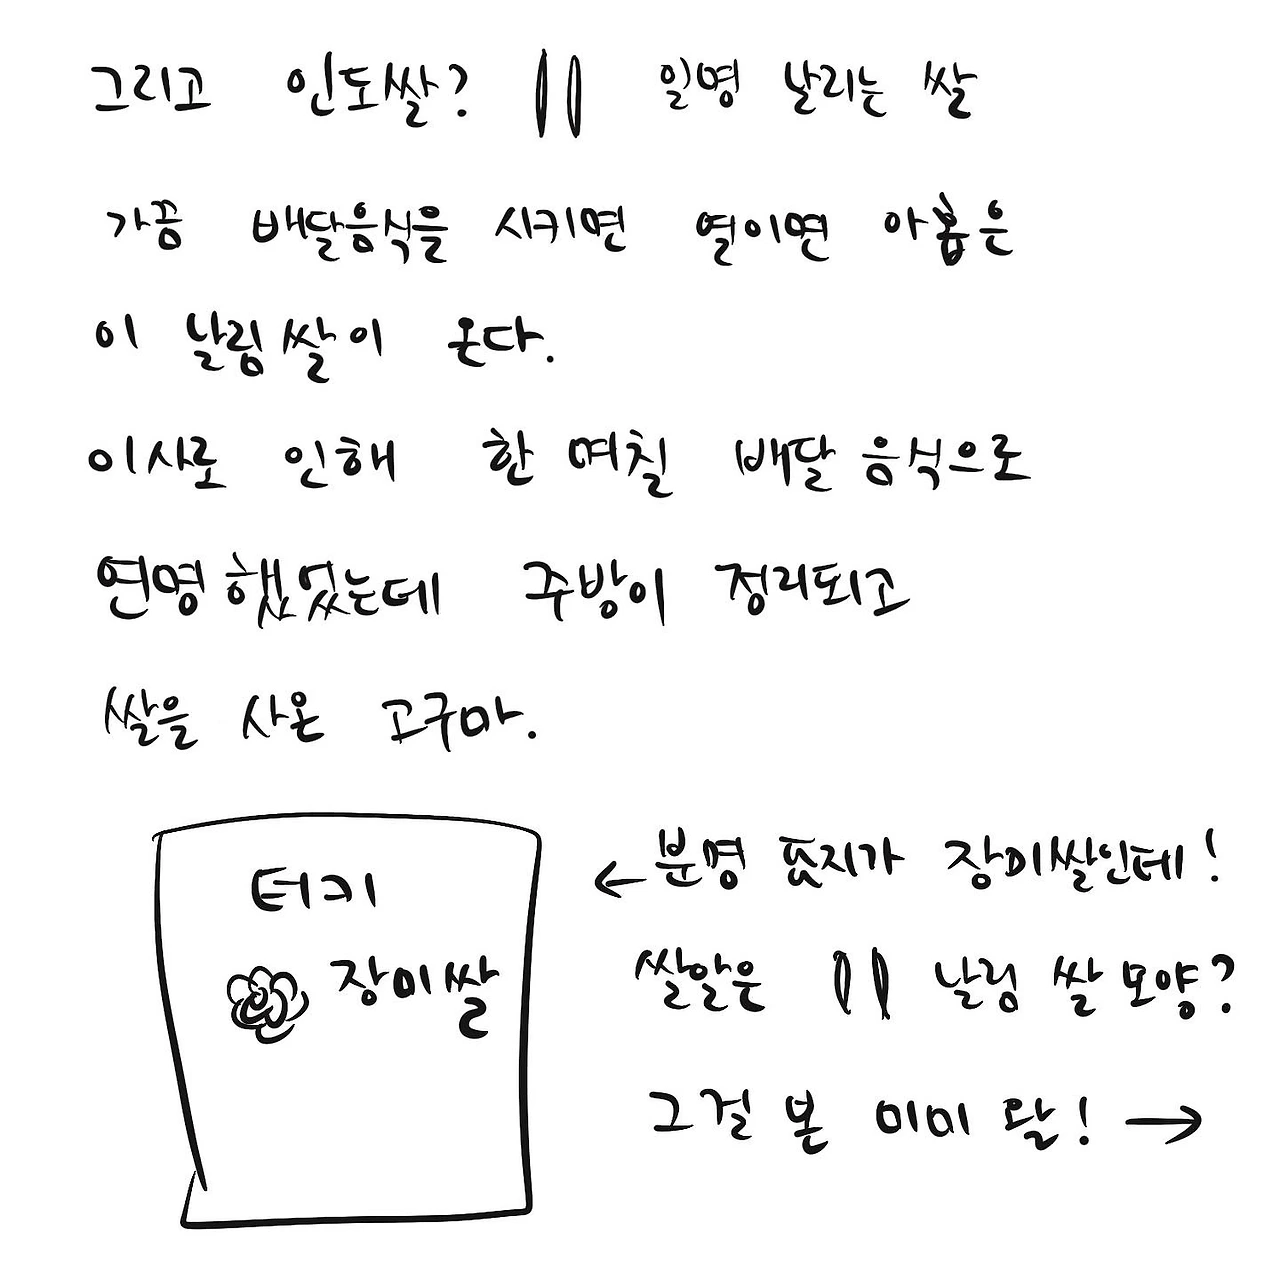 그리고 인도쌀? 일명 날리는 쌀
가끔 배달음식을 시키면 열이면 아홉은
이 날림쌀이 온다.
이사로 인해 한 며칠 배달 음식으로
연명했었는데 주방이 정리되고
쌀을 사온 고구마.
터키
장미쌀
← 분명 표지가 장미쌀인데!
쌀알은 날림 쌀 모양?
그걸 본 미미 왈! →